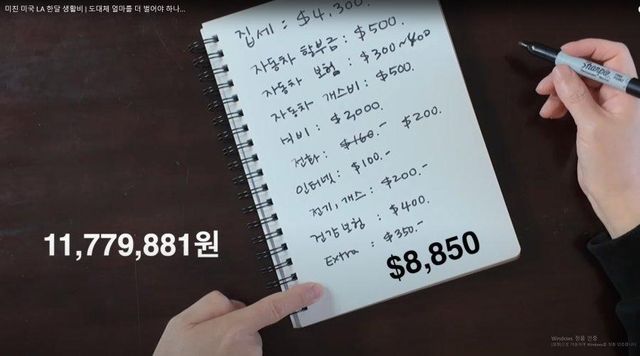 미친 미국 LA 한달 생활비 | 도대체 얼마를 더 벌어야 하나...
집세 : $4,300.
자동차 할부금 : $500
자동차 보험 : $300~400
자동차 개스비 : $500.
식비 : $2,000.
전화 : $160.- $200.
인터넷 : $100.-
전기, 개스 : $200.-
건강보험 : $400.
Extra : $350.-
$8,850
11,779,881원
Sharpie
Windows 정품 인증